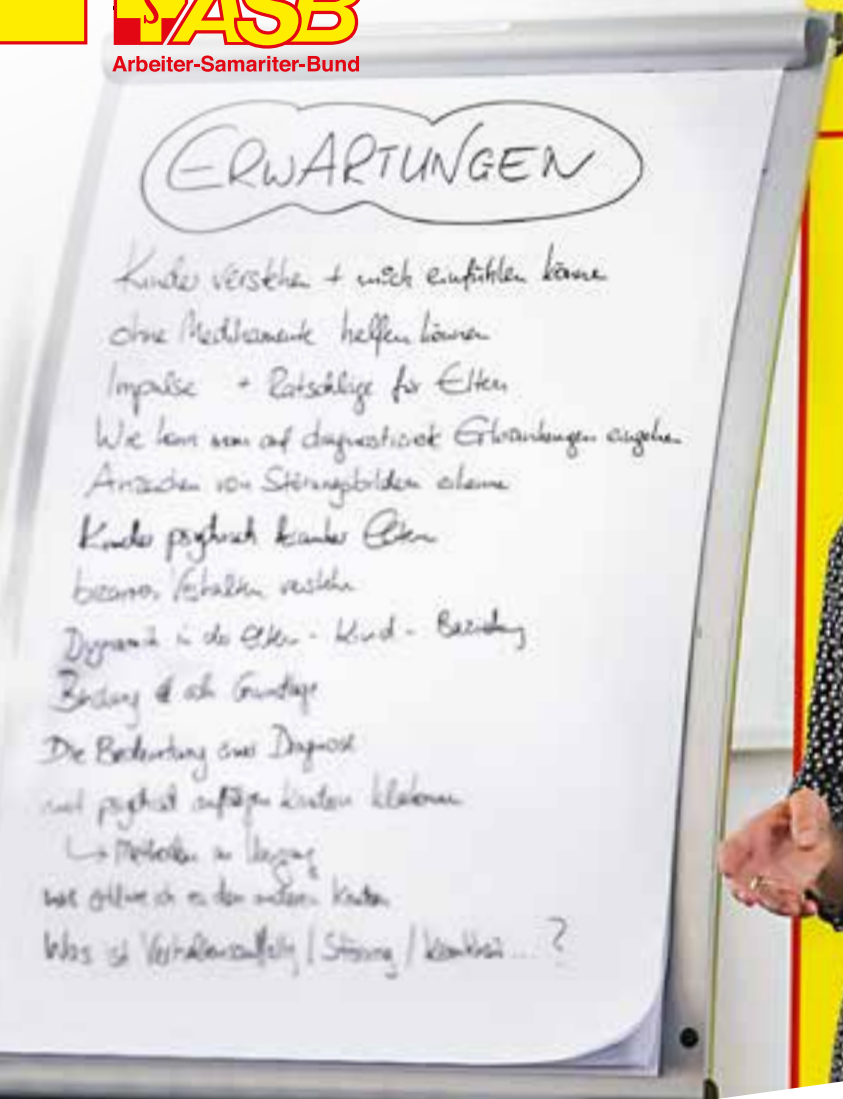 ASB
Arbeiter-Samariter-Bund
ERWARTUNGEN
Kinder verstehen + mich einfühlen könne
ohne Medikamente helfen können
Impulse + Ratschläge für Eltern
Wie kann man auf diagnostizierte Erkrankungen eingehen
Anzeichen von Störungsbildern erkenne
Kinder psychisch kranker Eltern
bizarres Verhalten verstehn
Dynamik in der Eltern - Kind - Beziehung
Bindung als Grundlage
Die Bedeutung einer Diagnose
mit Kindern
↳ Methoden im Umgang
wie ich es den anderen Kindern
Was ist / Störung / Krankheit ... ?